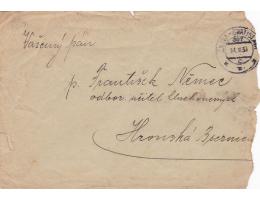 Vážený pán
p. František Němec
odbor. učitel hluchonemých
Hronská Breznica